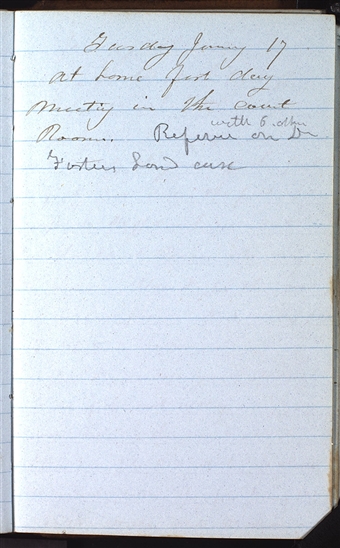 Tuesday Jany 17
at home fast day
Meeting in the Court
Room. Referee on Dr
with 6 other
Fosters Land case